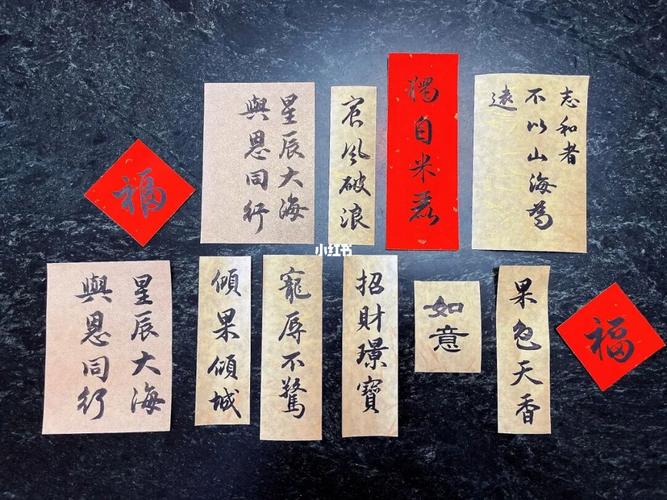 福
星辰大海
與恩同行
风破浪
獨自米
志和者
不以山海為
遠
小红书
星辰大海
與恩同行
傾果傾城
寵辱不驚
招財璟寶
如意
果色天香
福